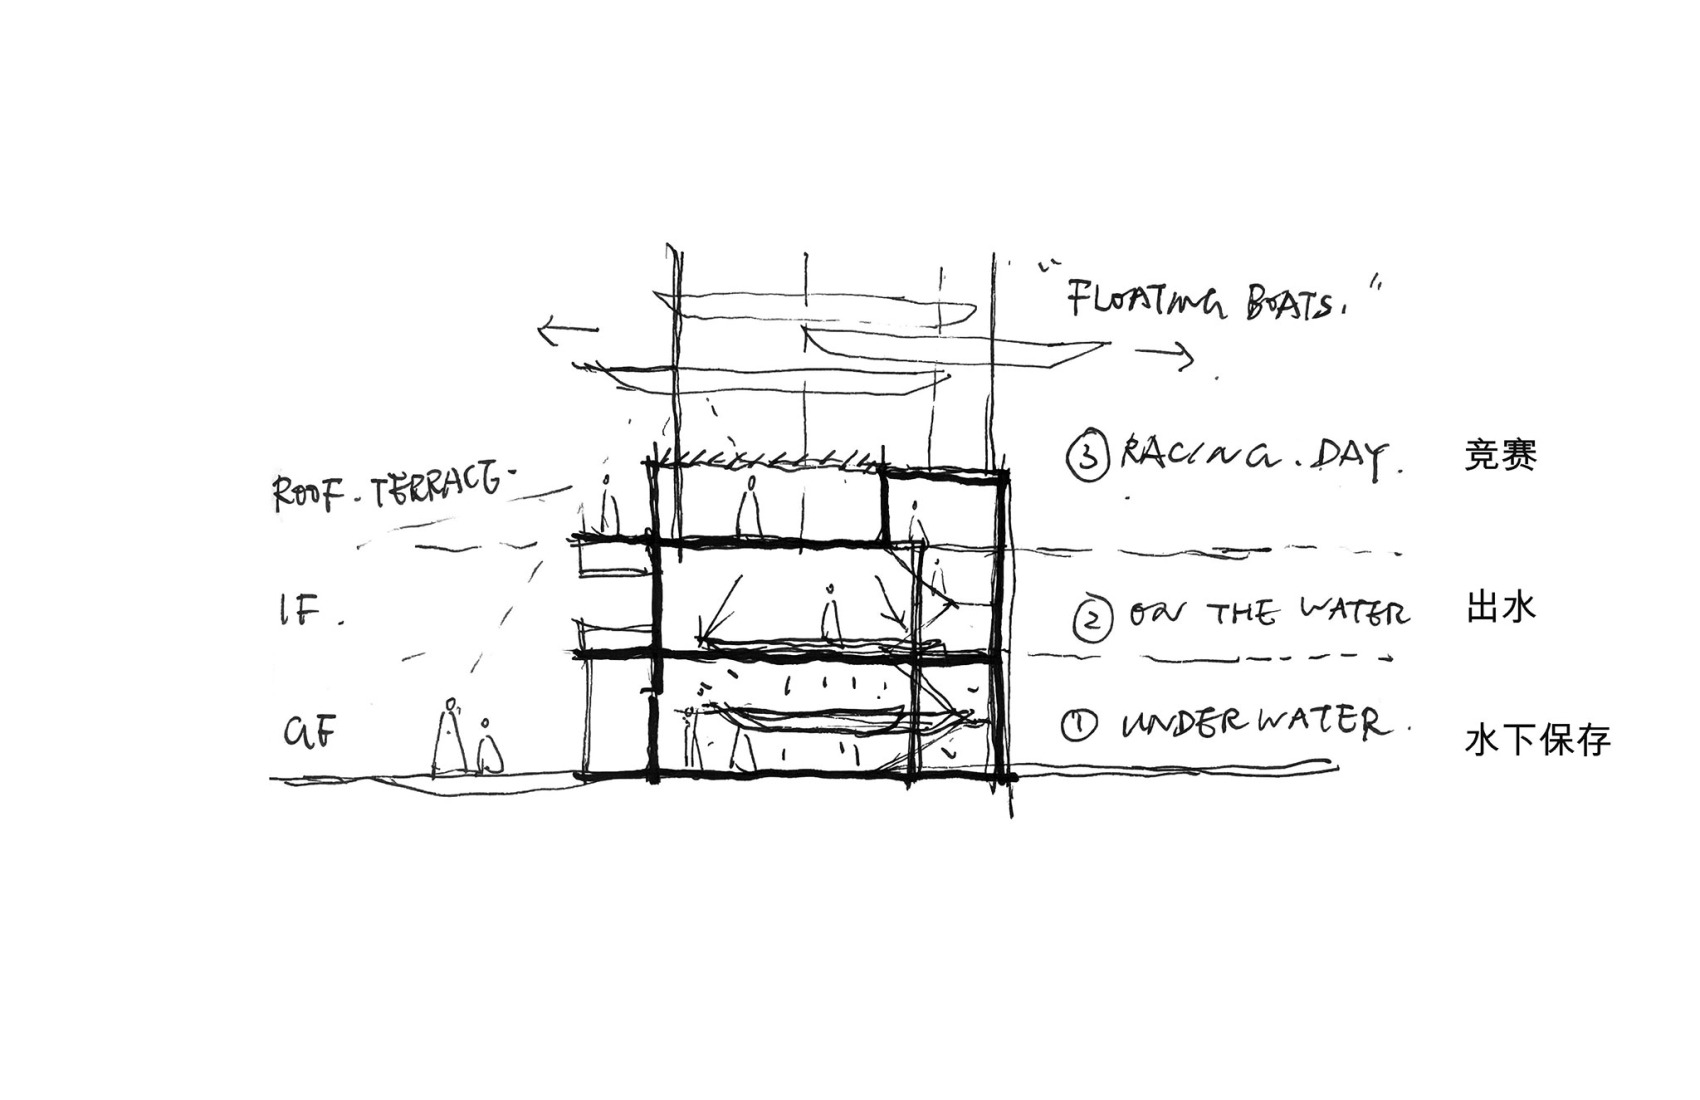 "FLOATING BOATS."
③ RACING. DAY. 竞赛
ROOF. TERRACE.
1F.
② ON THE WATER 出水
GF
① UNDERWATER. 水下保存